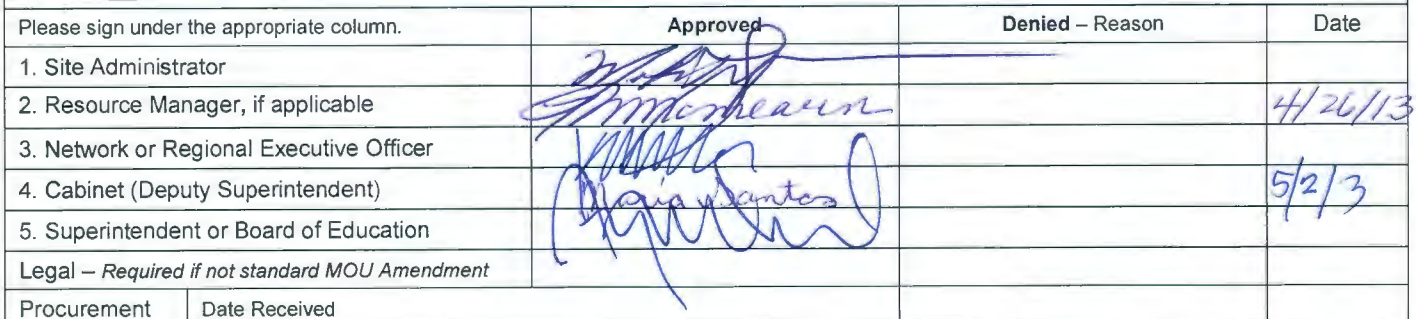 Please sign under the appropriate column. Approved Denied – Reason Date
1. Site Administrator
2. Resource Manager, if applicable 4/26/13
3. Network or Regional Executive Officer
4. Cabinet (Deputy Superintendent) Maria Santos 5/2/3
5. Superintendent or Board of Education
Legal – Required if not standard MOU Amendment
Procurement Date Received